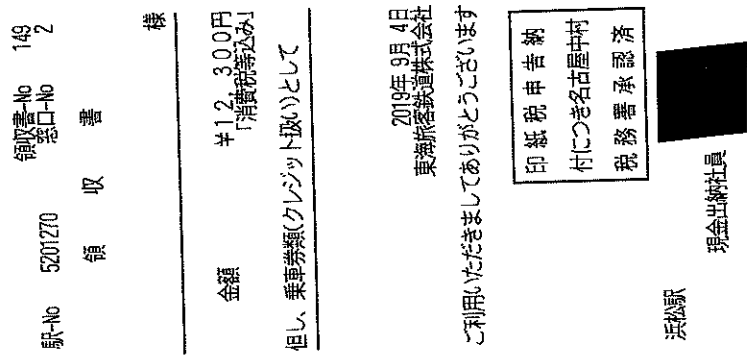 駅-No 5201270 領収書-No 149
窓口-No 2
領 収 書
様
金額 ¥12,300円
「消費税等込み」
但し、乗車券類(クレジット扱い)として
2019年 9月 4日
東海旅客鉄道株式会社
ご利用いただきましてありがとうございます
印紙税申告納
付につき名古屋中村
税務署承認済
浜松駅
現金出納社員